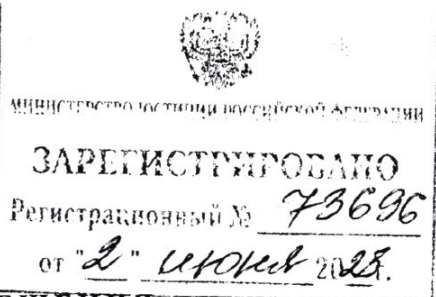 МИНИСТЕРСТВО ЮСТИЦИИ РОССИЙСКОЙ ФЕДЕРАЦИИ
ЗАРЕГИСТРИРОВАНО
Регистрационный № 73696
от "2" июня 2023.